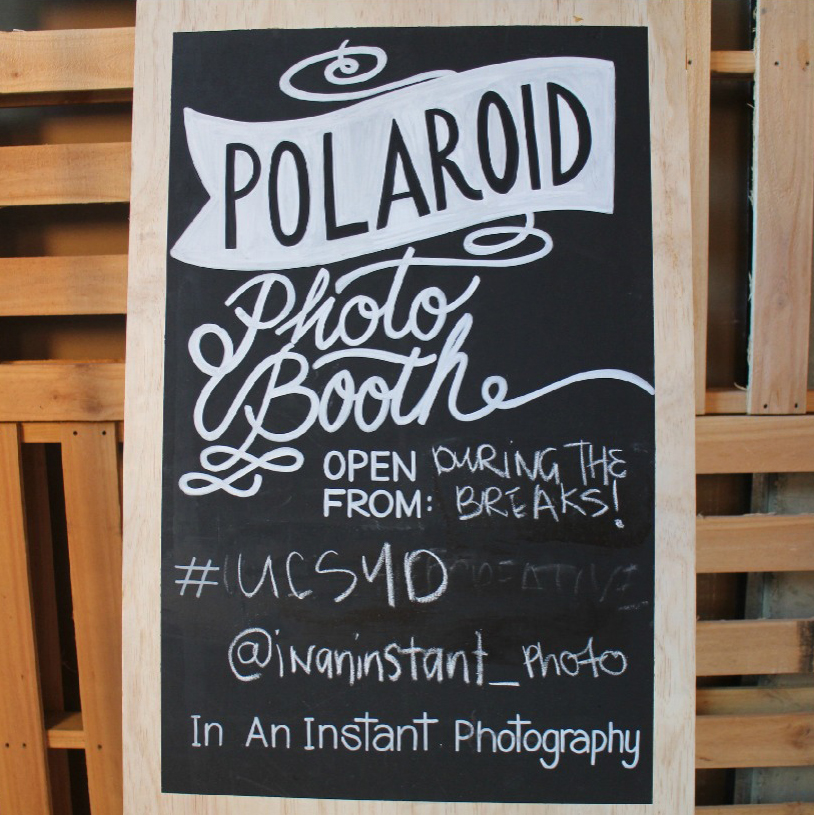 POLAROID
Photo
Booth
OPEN DURING THE
FROM: BREAKS!
#UCSYD
@inaninstant_photo
In An Instant Photography